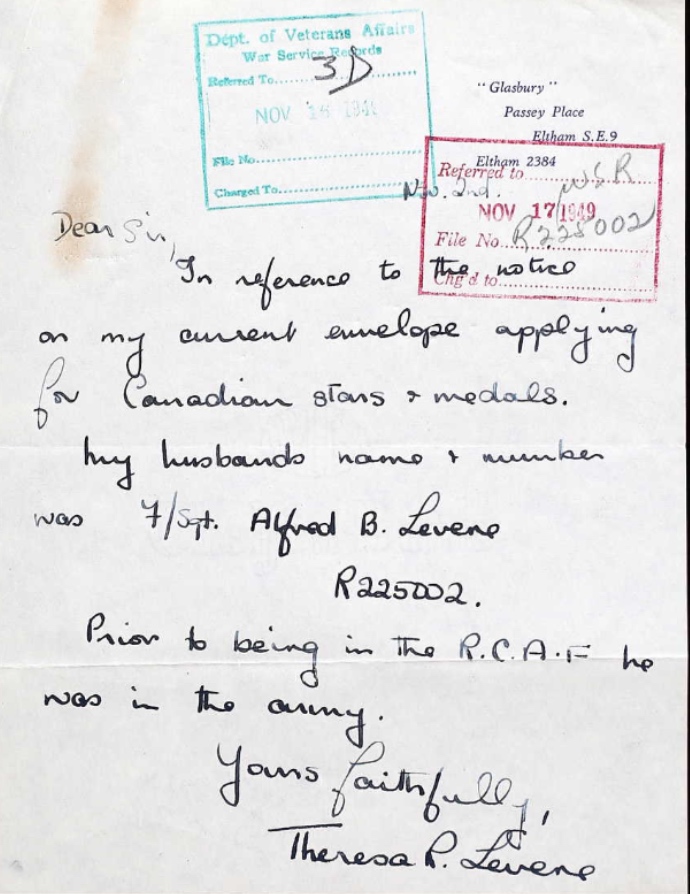 Dept. of Veterans Affairs
War Service Records
Referred To 3D
NOV 16 194
File No.
Charged To
"Glasbury"
Passey Place
Eltham S.E.9
Eltham 2384
Referred to WSR
NOV 17 1949
File No. R225002
Chg'd to
Nov. 2nd.
Dear Sir,
In reference to the notice
on my current envelope applying
for Canadian stars & medals.
My husbands name & number
was F/Sgt. Alfred B. Levene
R225002.
Prior to being in the R.C.A.F he
was in the army.
Yours faithfully,
Theresa R. Levene